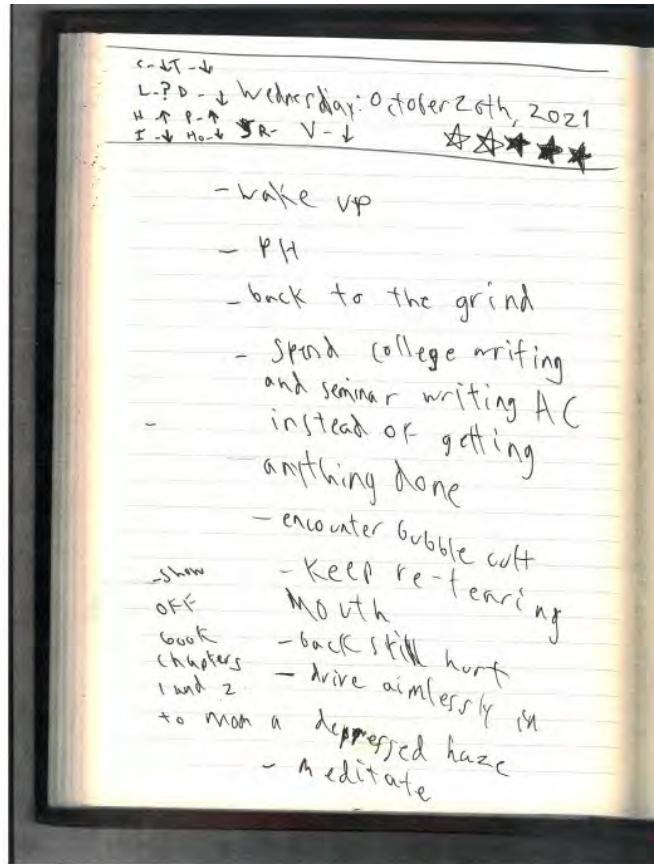 C-↓T-↓
L-? D-↓ Wednesday: October 20th, 2021
H-↑ P-↑
I-↓ Mo-↓ R- V-↓ ☆☆★★★
- wake up
- PH
- back to the grind
- spend college writing
and seminar writing AC
instead of getting
anything done
- encounter bubble cult
- Keep re-tearing
mouth
- back still hurt
- drive aimlessly in
a depressed haze
- meditate
- show
off
book
chapters
1 and 2
to mom